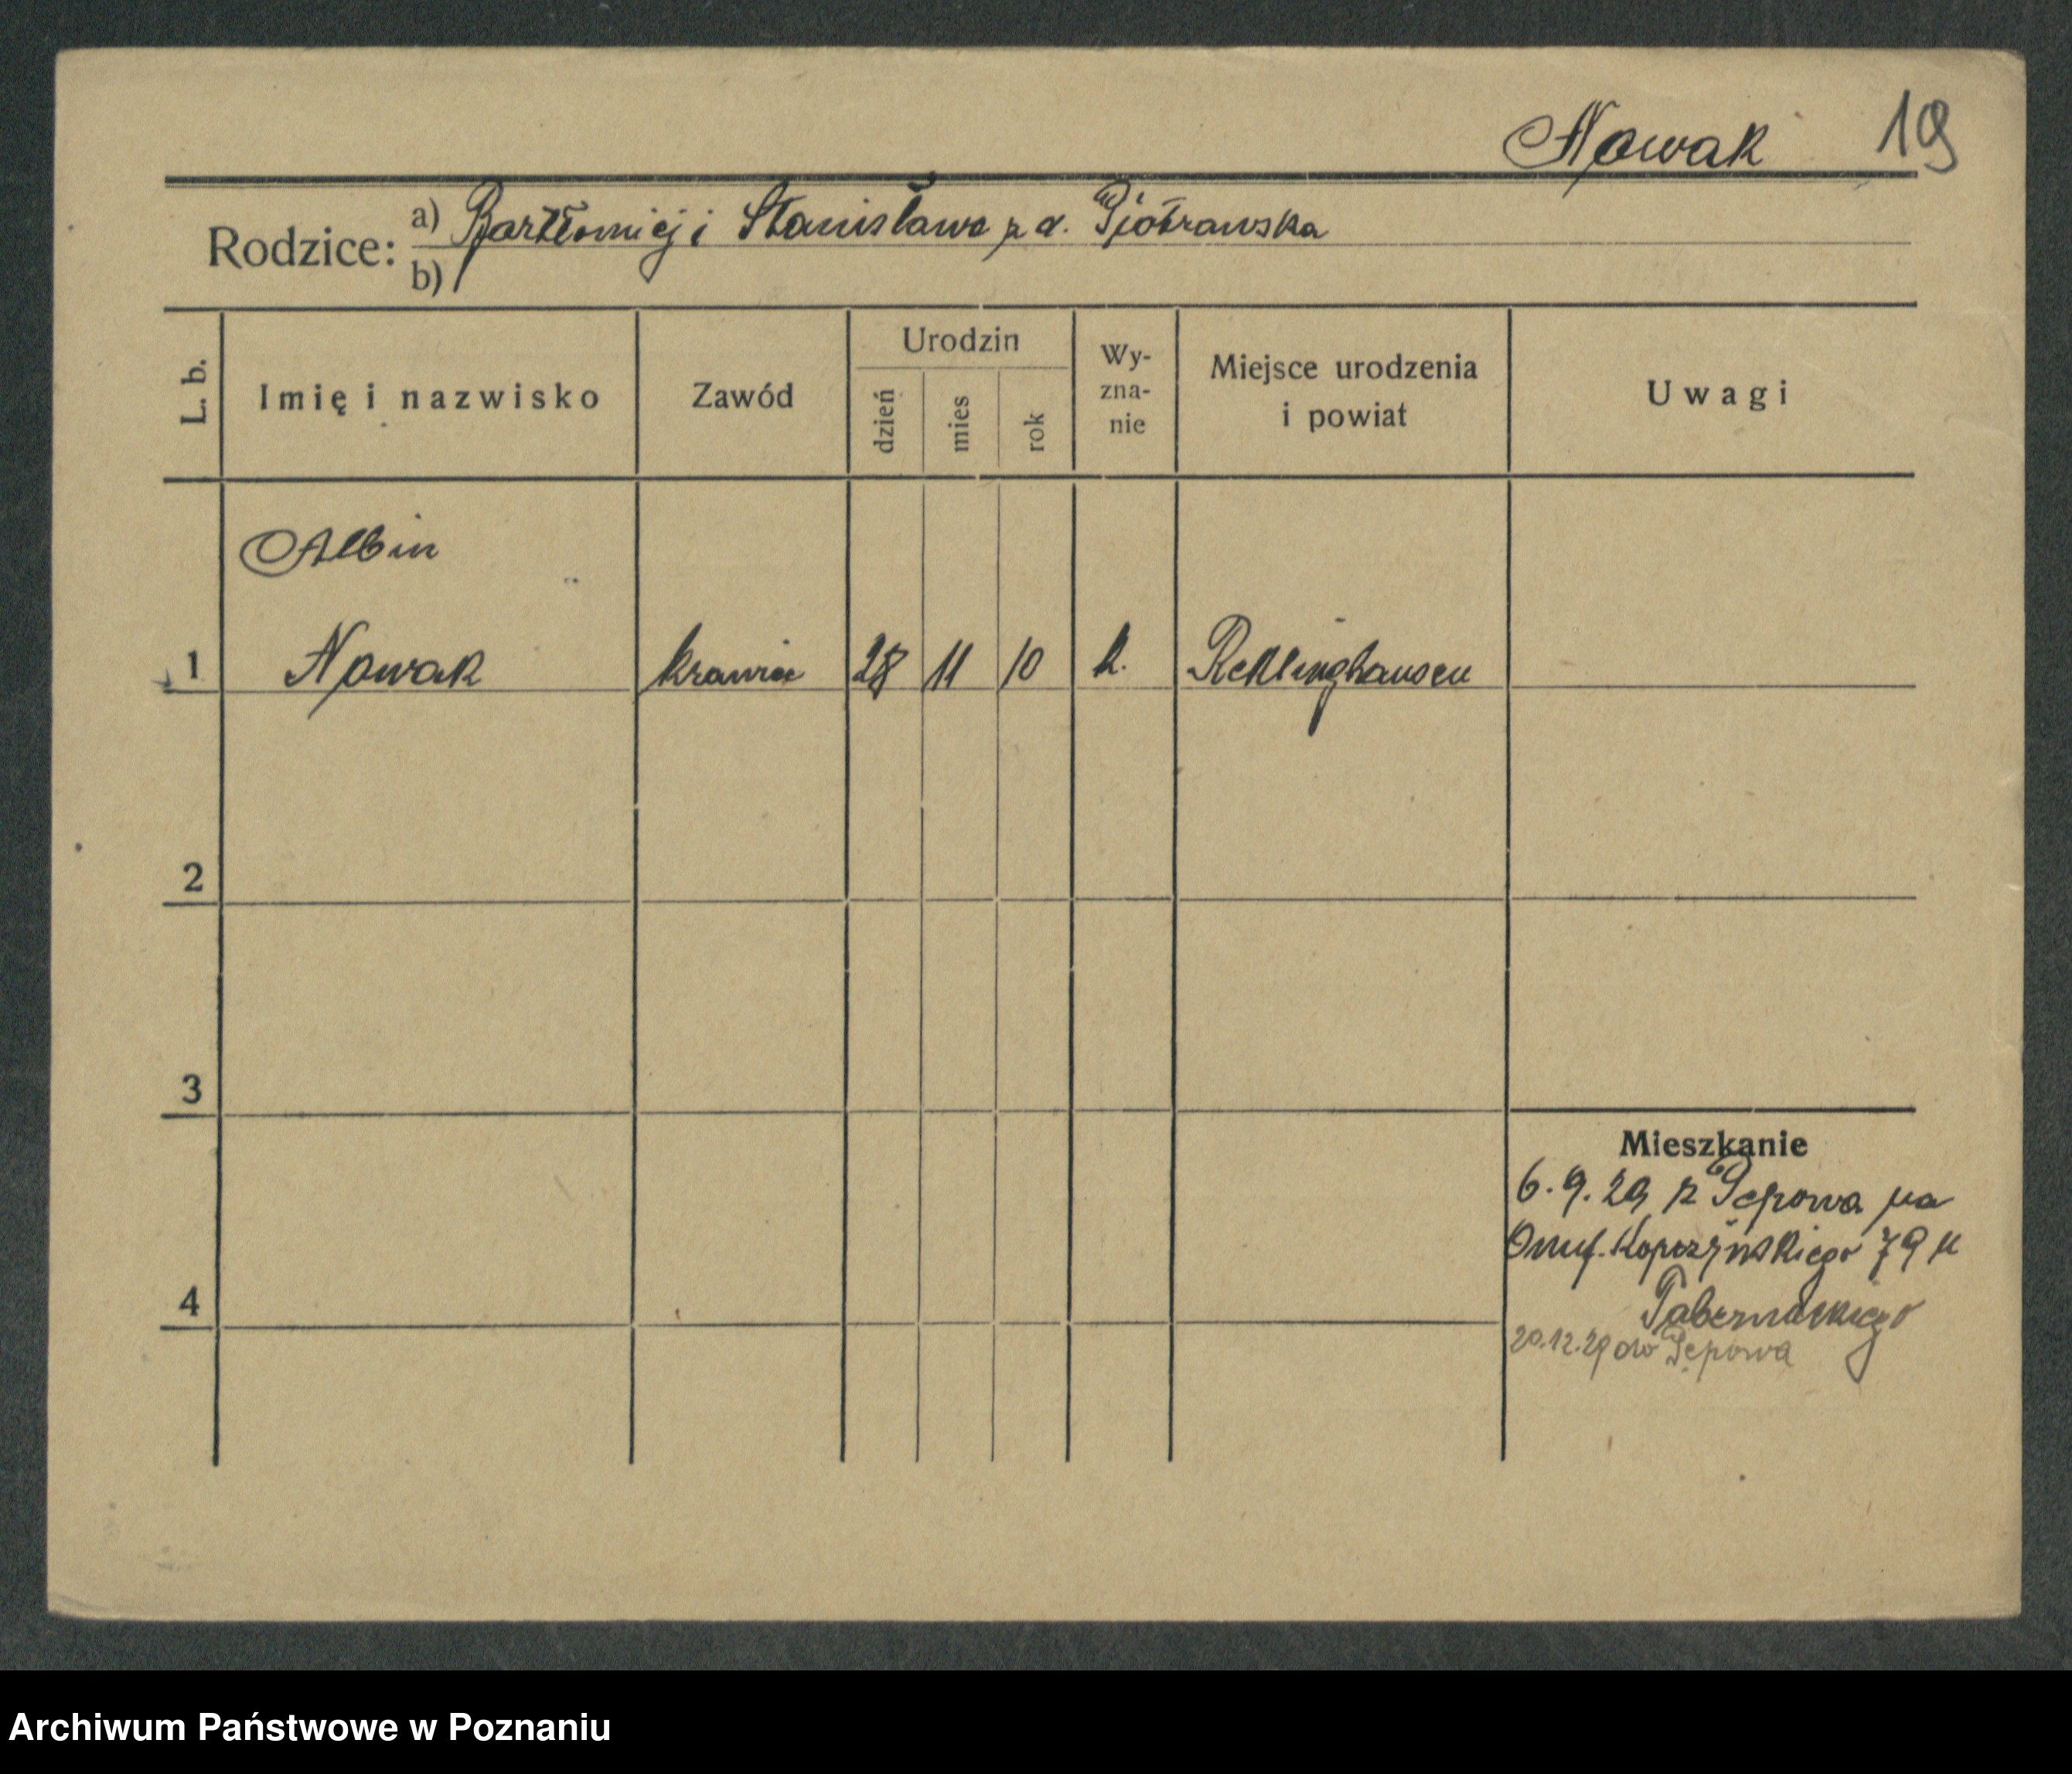 Nowak 19
Rodzice: a) Bartłomiej i Stanisława z d. Piotrowska
b)
L. b. Imię i nazwisko Zawód Urodzin dzień mies rok Wy-zna-nie Miejsce urodzenia i powiat Uwagi
Albin
1 Nowak krawiec 28 11 10 k. Reklinghausen
2
3
Mieszkanie
6.9.29 z Pępowa na
Kopczyńskiego 79 u
4 Tabernackiego
20.12.29 do Pępowa
Archiwum Państwowe w Poznaniu